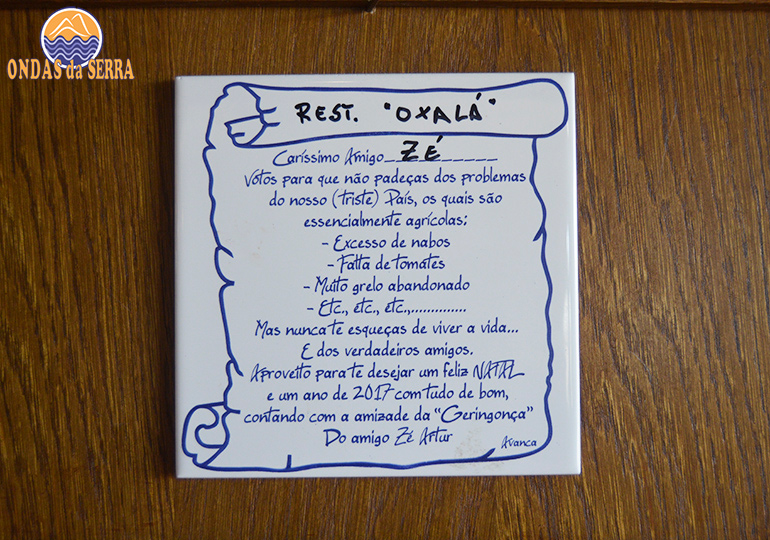 ONDAS da SERRA
REST. "OXALÁ"
Caríssimo Amigo_ZÉ__________
Votos para que não padeças dos problemas
do nosso (triste) País, os quais são
essencialmente agrícolas:
- Excesso de nabos
- Falta de tomates
- Muito grelo abandonado
- Etc., etc., etc.,..............
Mas nunca te esqueças de viver a vida...
E dos verdadeiros amigos.
Aproveito para te desejar um feliz NATAL
e um ano de 2017 com tudo de bom,
contando com a amizade da "Geringonça"
Do amigo Zé Artur
Avanca